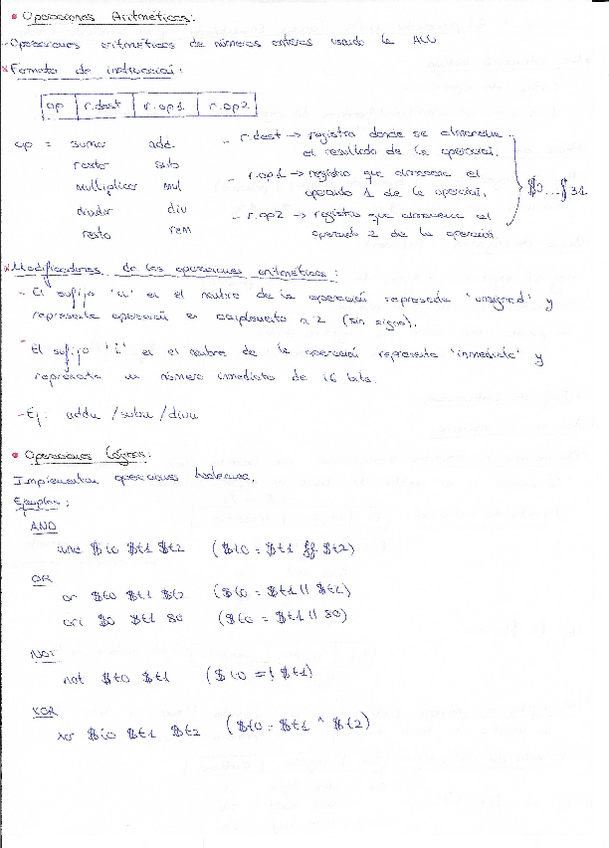 Operaciones Aritméticas:
- Operaciones aritméticas de números enteros usando la ALU
Formato de instrucción:
op | r.dest | r.op1 | r.op2
op = sumar add
restar sub
multiplicar mul
dividir div
resto rem
- r.dest → registro donde se almacena
el resultado de la operación.
- r.op1 → registro que almacena el
operando 1 de la operación.
- r.op2 → registro que almacena el
operando 2 de la operación
$0...$31
Modificadores de las operaciones aritméticas:
- El sufijo 'u' en el nombre de la operación representa 'unsigned' y
representa operación en complemento a 2 (sin signo).
- El sufijo 'i' en el nombre de la operación representa 'inmediate' y
representa un número inmediato de 16 bits.
- Ej: addu / subu / divu
Operaciones Lógicas:
Implementan operaciones booleanas.
Ejemplos:
AND
and $t0 $t1 $t2 ($t0 = $t1 && $t2)
OR
or $t0 $t1 $t2 ($t0 = $t1 || $t2)
ori $0 $t1 80 ($t0 = $t1 || 80)
NOT
not $t0 $t1 ($t0 = ! $t1)
XOR
xor $t0 $t1 $t2 ($t0 = $t1 ^ $t2)